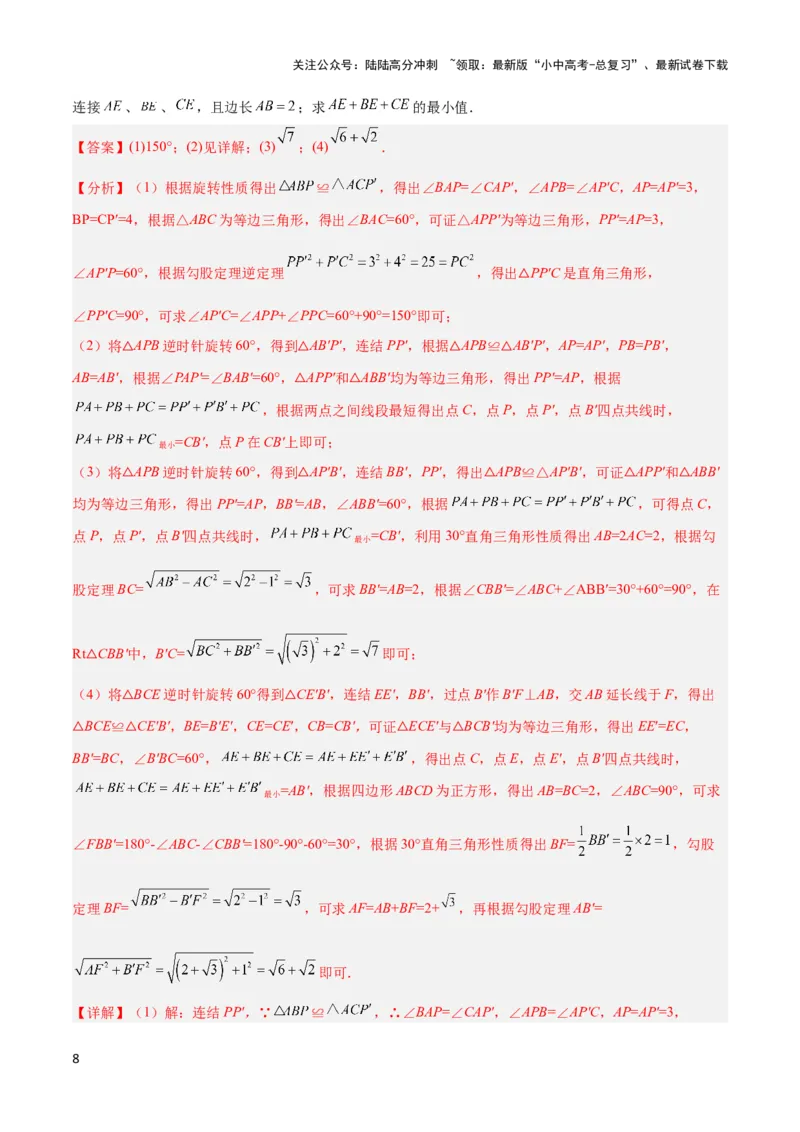 关注公众号：陆陆高分冲刺　~领取：最新版“小中高考-总复习”、最新试卷下载
连接 AE 、 BE 、 CE ，且边长 AB = 2 ；求 AE + BE + CE 的最小值．
【答案】(1)150°；(2)见详解；(3) √7 ；(4) √6 + √2 ．
【分析】（1）根据旋转性质得出 △ABP ≌ △ACP′ ，得出∠BAP=∠CAP′，∠APB=∠AP′C，AP=AP′=3，
BP=CP′=4，根据△ABC为等边三角形，得出∠BAC=60°，可证△APP′为等边三角形，PP′=AP=3，
∠AP′P=60°，根据勾股定理逆定理 PP′² + P′C² = 3² + 4² = 25 = PC² ，得出△PP′C是直角三角形，
∠PP′C=90°，可求∠AP′C=∠APP+∠PPC=60°+90°=150°即可；
（2）将△APB逆时针旋转60°，得到△AB′P′，连结PP′，根据△APB≌△AB′P′，AP=AP′，PB=PB′，
AB=AB′，根据∠PAP′=∠BAB′=60°，△APP′和△ABB′均为等边三角形，得出PP′=AP，根据
PA + PB + PC = PP′ + P′B′ + PC ，根据两点之间线段最短得出点C，点P，点P′，点B′四点共线时，
PA + PB + PC 最小=CB′，点P在CB′上即可；
（3）将△APB逆时针旋转60°，得到△AP′B′，连结BB′，PP′，得出△APB≌△AP′B′，可证△APP′和△ABB′
均为等边三角形，得出PP′=AP，BB′=AB，∠ABB′=60°，根据 PA + PB + PC = PP′ + P′B′ + PC ，可得点C，
点P，点P′，点B′四点共线时， PA + PB + PC 最小=CB′，利用30°直角三角形性质得出AB=2AC=2，根据勾
股定理BC= √(AB² − AC²) = √(2² − 1²) = √3 ，可求BB′=AB=2，根据∠CBB′=∠ABC+∠ABB′=30°+60°=90°，在
Rt△CBB′中，B′C= √(BC² + BB′²) = √((√3)² + 2²) = √7 即可；
（4）将△BCE逆时针旋转60°得到△CE′B′，连结EE′，BB′，过点B′作B′F⊥AB，交AB延长线于F，得出
△BCE≌△CE′B′，BE=B′E′，CE=CE′，CB=CB′，可证△ECE′与△BCB′均为等边三角形，得出EE′=EC，
BB′=BC，∠B′BC=60°， AE + BE + CE = AE + EE′ + E′B′ ，得出点C，点E，点E′，点B′四点共线时，
AE + BE + CE = AE + EE′ + E′B′ 最小=AB′，根据四边形ABCD为正方形，得出AB=BC=2，∠ABC=90°，可求
∠FBB′=180°-∠ABC-∠CBB′=180°-90°-60°=30°，根据30°直角三角形性质得出BF= 1/2 BB′ = 1/2 × 2 = 1 ，勾股
定理BF= √(BB′² − B′F²) = √(2² − 1²) = √3 ，可求AF=AB+BF=2+ √3 ，再根据勾股定理AB′=
√(AF² + B′F²) = √((2 + √3)² + 1²) = √6 + √2 即可．
【详解】（1）解：连结PP′，∵ △ABP ≌ △ACP′ ，∴∠BAP=∠CAP′，∠APB=∠AP′C，AP=AP′=3，
8